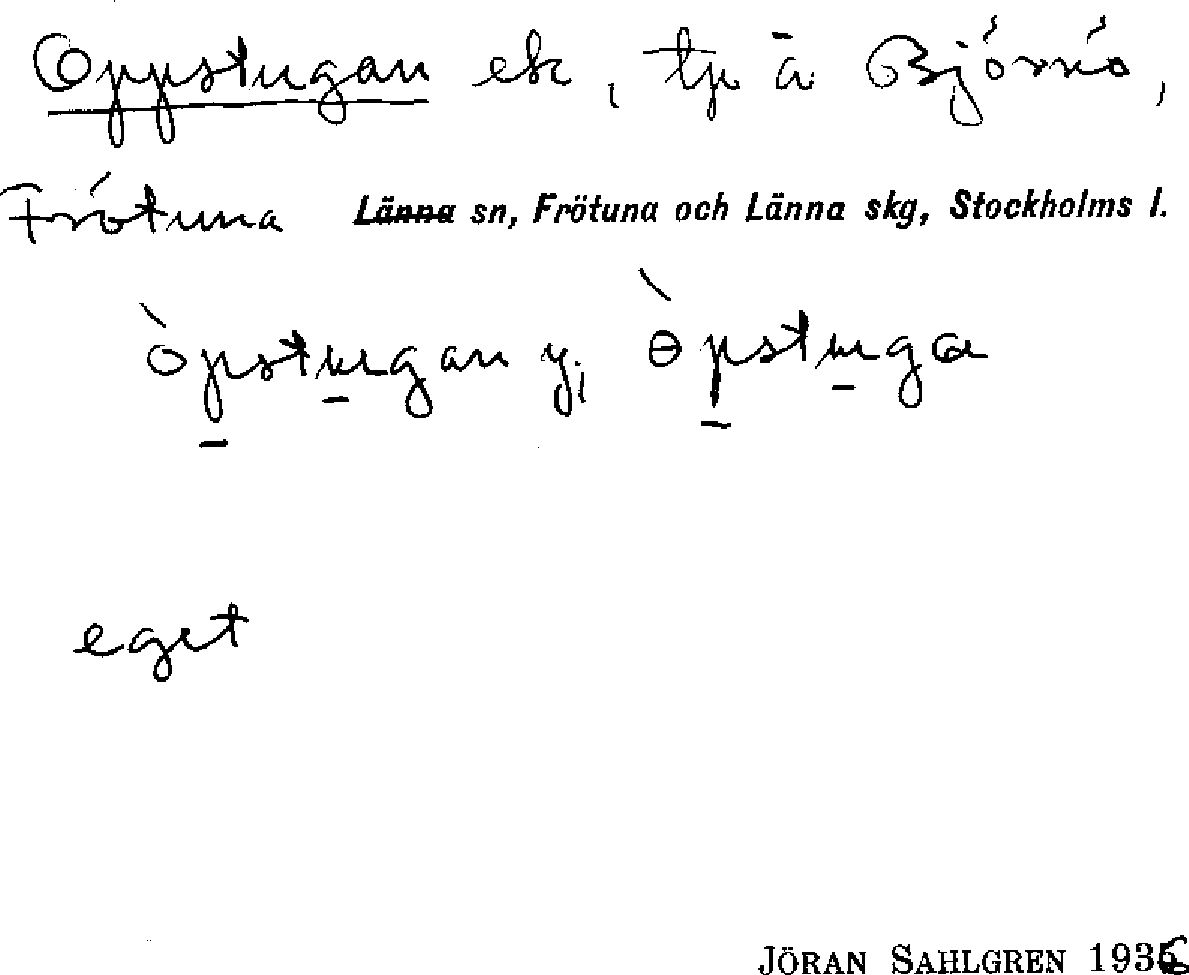 Oppstugan ek, tp å Björnö,
Frötuna Länna sn, Frötuna och Länna skg, Stockholms l.
òpstugan y; ɵ̀pstuga
eget
JÖRAN SAHLGREN 1936